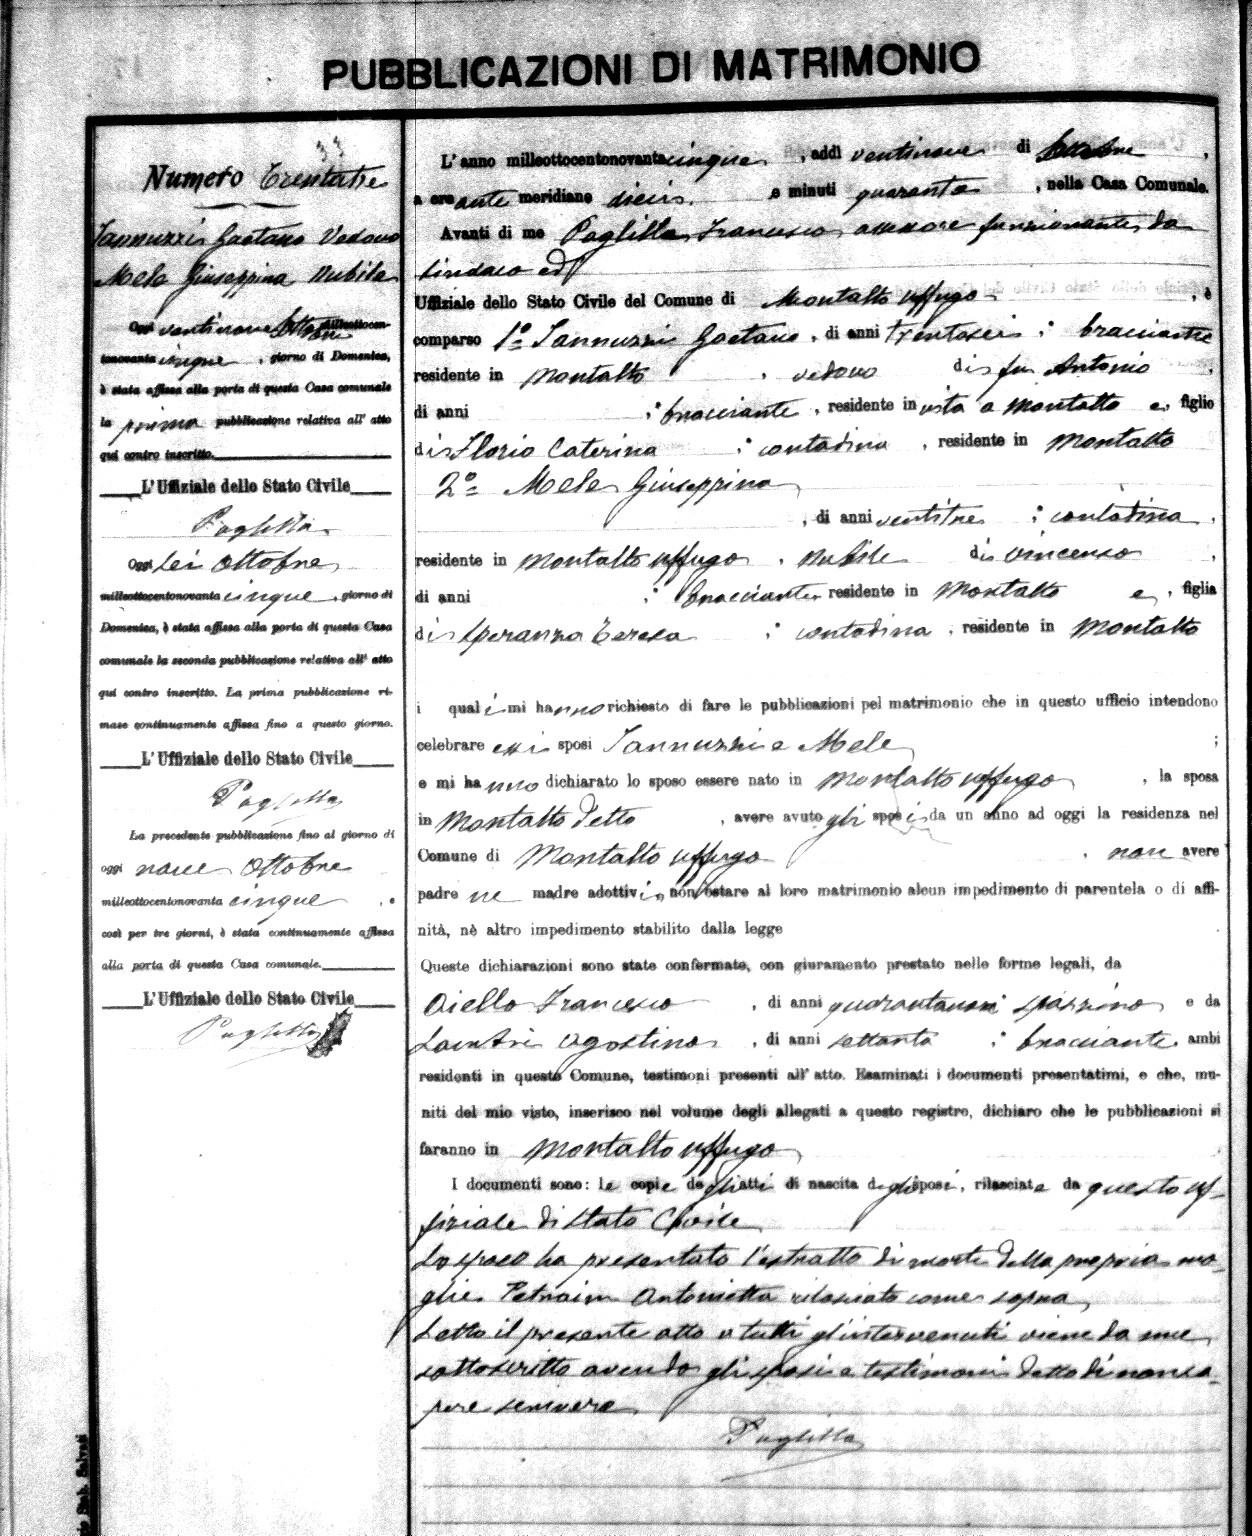 PUBBLICAZIONI DI MATRIMONIO
33
Numero Trentatre
Iannuzzi Gaetano Vedovo
Mele Giuseppina Nubile
Oggi ventinove Settembre milleottocen-
tonovanta cinque, giorno di Domenica,
è stata affissa alla porta di questa Casa comunale
la prima pubblicazione relativa all' atto
qui contro inscritto.
L'Uffiziale dello Stato Civile
Paglilla
Oggi sei Ottobre
milleottocentonovanta cinque, giorno di
Domenica, è stata affissa alla porta di questa Casa
comunale la seconda pubblicazione relativa all' atto
qui contro inscritto. La prima pubblicazione ri-
mase continuamente affissa fino a questo giorno.
L'Uffiziale dello Stato Civile
Paglilla
La precedente pubblicazione fino al giorno di
oggi nove Ottobre
milleottocentonovanta cinque, e
così per tre giorni, è stata continuamente affissa
alla porta di questa Casa comunale.
L'Uffiziale dello Stato Civile
Paglilla
L' anno milleottocentonovanta cinque, addì ventinove di Settembre,
a ore ante meridiane dieci e minuti quaranta, nella Casa Comunale.
Avanti di me Paglilla Francesco assessore funzionante da
sindaco ed
Uffiziale dello Stato Civile del Comune di Montalto Uffugo, è
comparso 1º Iannuzzi Gaetano, di anni trentasei; bracciante
residente in Montalto, vedovo di fu Antonio,
di anni ; bracciante, residente in vita a Montalto e, figlio
di Florio Caterina; contadina, residente in Montalto
2º Mele Giuseppina
, di anni ventitre; contadina,
residente in Montalto Uffugo, nubile di Vincenzo,
di anni ; bracciante residente in Montalto e, figlia
di Speranza Teresa; contadina, residente in Montalto
i quali mi hanno richiesto di fare le pubblicazioni pel matrimonio che in questo ufficio intendono
celebrare essi sposi Iannuzzi e Mele;
e mi hanno dichiarato lo sposo essere nato in Montalto Uffugo, la sposa
in Montalto detto, avere avuto gli sposi da un anno ad oggi la residenza nel
Comune di Montalto Uffugo, non avere
padre ne madre adottivi, non ostare al loro matrimonio alcun impedimento di parentela o di affi-
nità, nè altro impedimento stabilito dalla legge
Queste dichiarazioni sono state confermate, con giuramento prestato nelle forme legali, da
Aiello Francesco, di anni spazzino e da
Agostino, di anni settanta; bracciante, ambi
residenti in questo Comune, testimoni presenti all' atto. Esaminati i documenti presentatimi, e che, mu-
niti del mio visto, inserisco nel volume degli allegati a questo registro, dichiaro che le pubblicazioni si
faranno in Montalto Uffugo
I documenti sono: le copie degli atti di nascita degli sposi, rilasciate da questo Uf-
fiziale di Stato Civile
Lo sposo ha presentato l'estratto di morte della propria mo-
glie Antonietta rilasciato come sopra
Letto il presente atto a tutti gl'intervenuti viene da me
sottoscritto avendo gli sposi e testimoni detto di non sa-
pere scrivere
Paglilla
Salvati